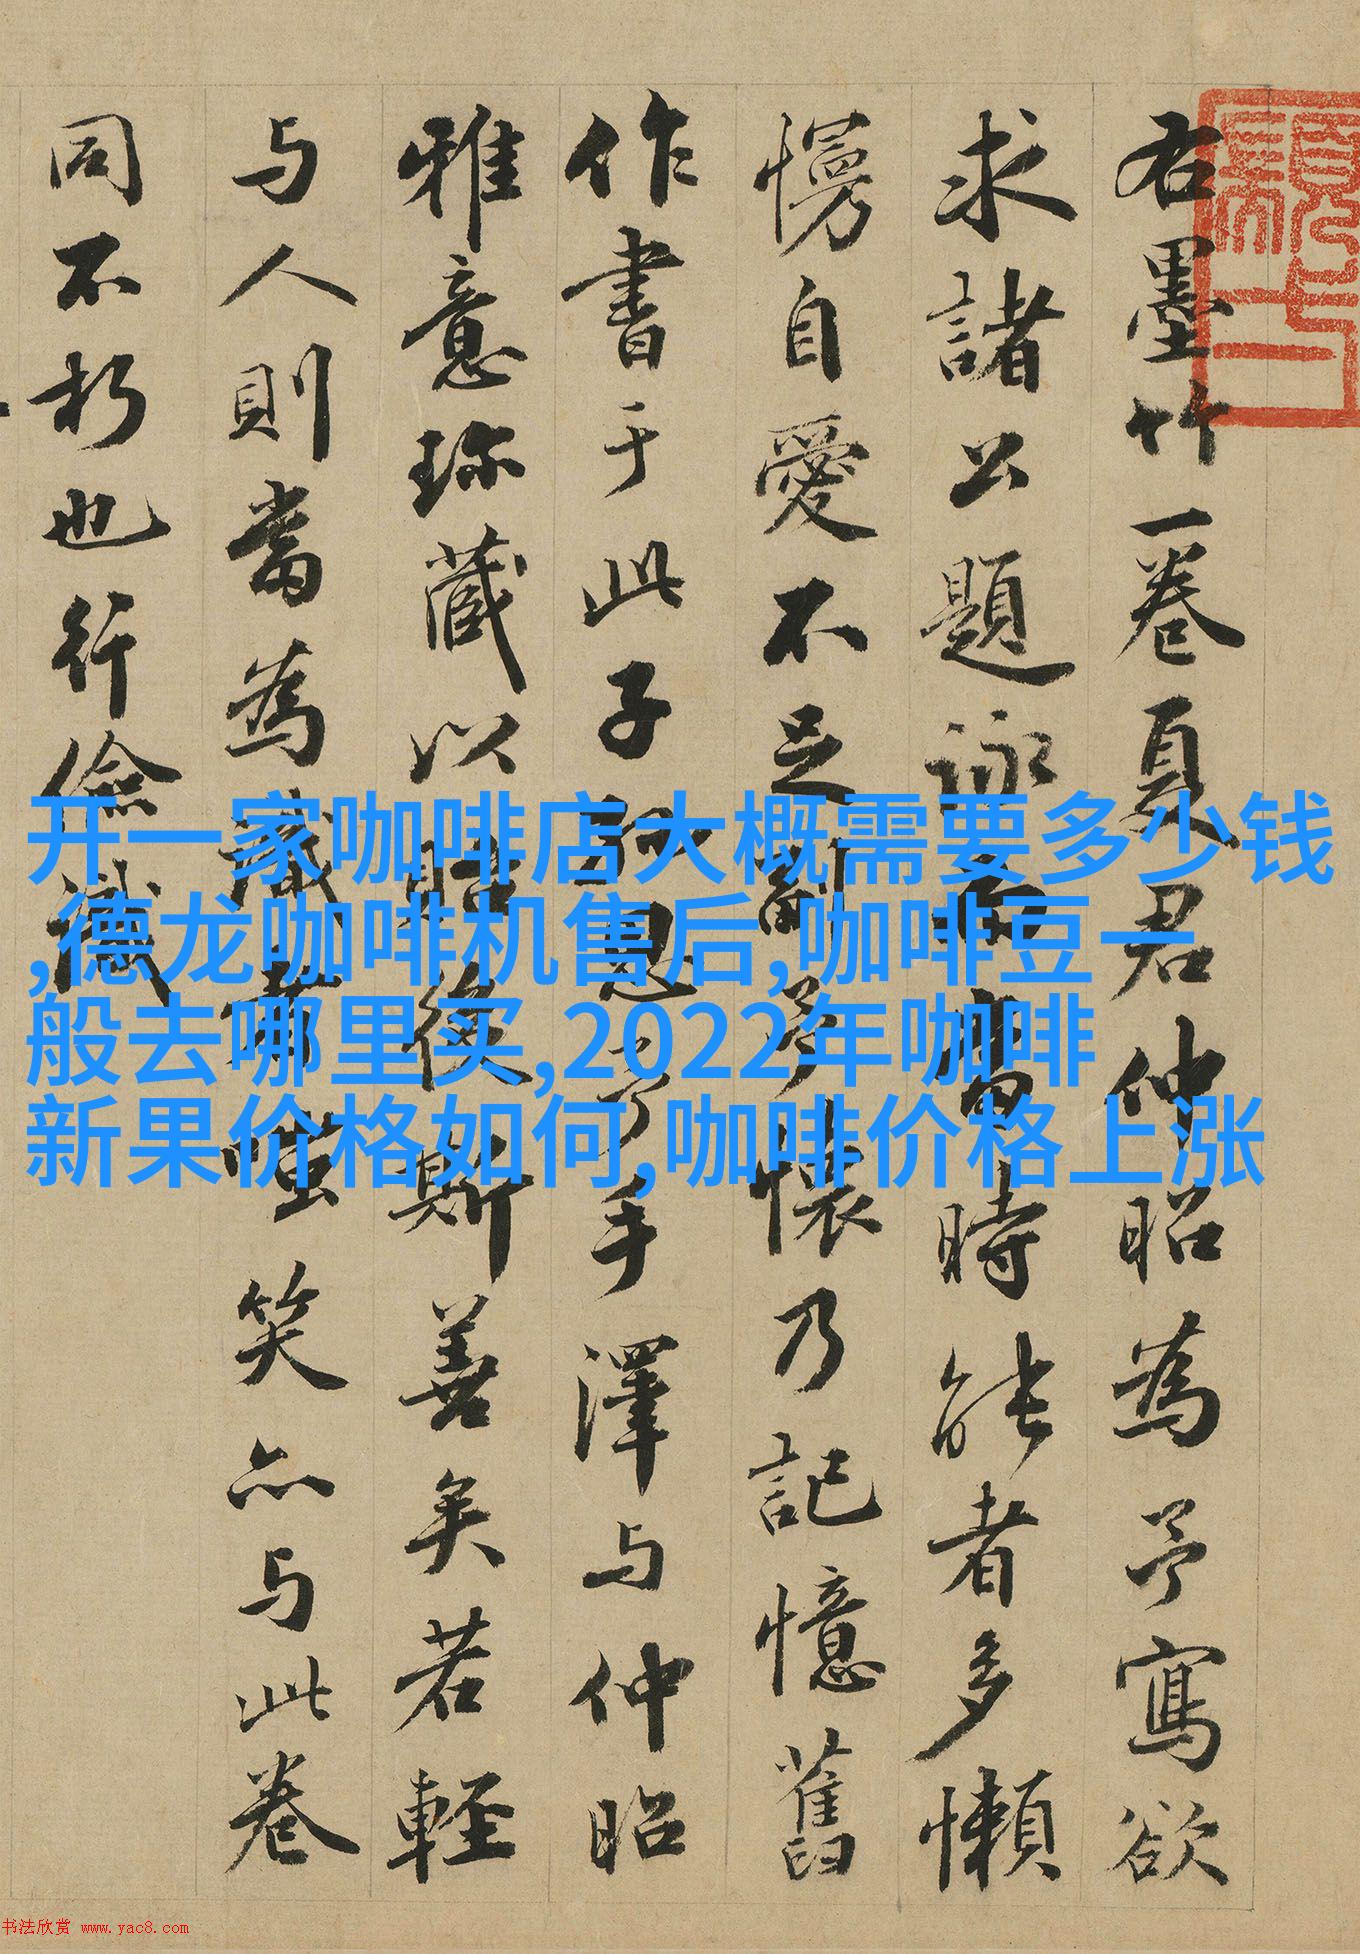 右墨竹一卷夏君仲昭為予寫欲
求諸公題詠而當時能者多懶
慢自愛不足副予懷乃記憶舊
作書于此子孫思予手澤与仲昭
雅意珎藏以貽後斯善矣若輕
与人則當為識者嗤笑亦与此卷
同不朽也行儉識
开一家咖啡店大概需要多少钱
,德龙咖啡机售后,咖啡豆一
般去哪里买,2022年咖啡
新果价格如何,咖啡价格上涨
书法欣赏 www.yac8.com